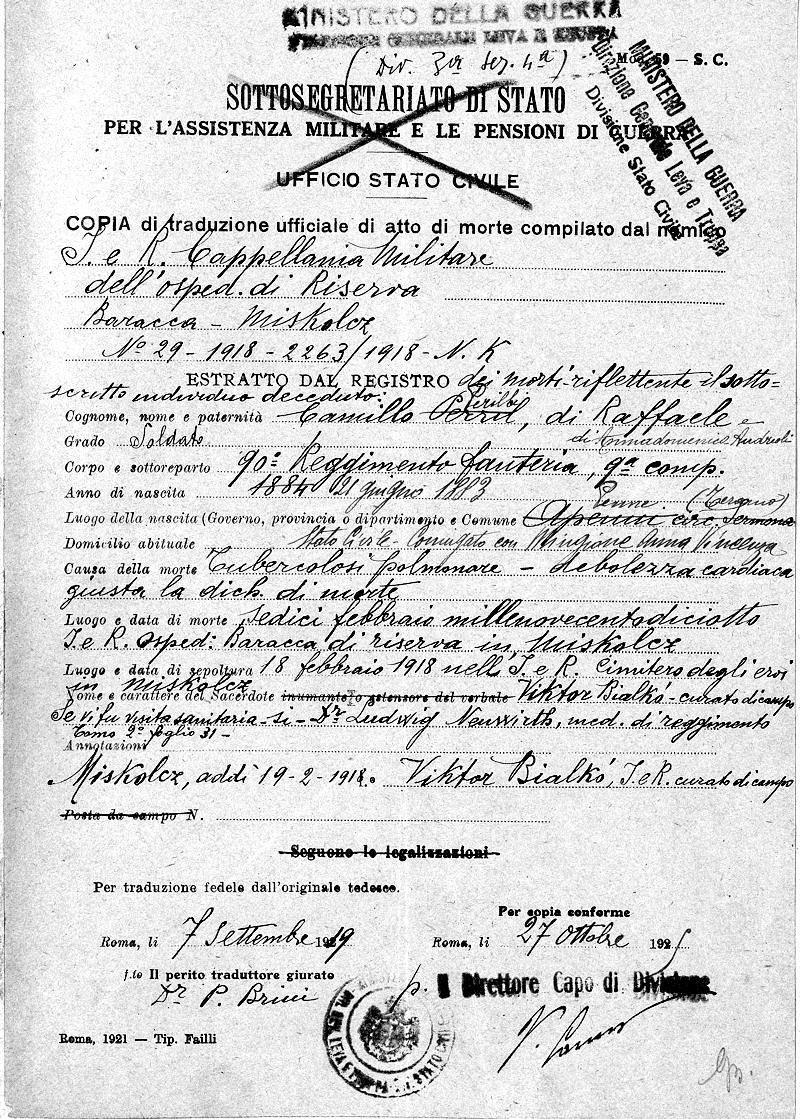 MINISTERO DELLA GUERRA
DIREZIONE GENERALE LEVA E TRUPPA
(Div. 3ª Sez. 4ª)
Mod. 59 — S. C.
MINISTERO DELLA GUERRA
Direzione Generale Leva e Truppa
Divisione Stato Civile
SOTTOSEGRETARIATO DI STATO
PER L'ASSISTENZA MILITARE E LE PENSIONI DI GUERRA
UFFICIO STATO CIVILE
COPIA di traduzione ufficiale di atto di morte compilato dal nemico
I. e R. Cappellania Militare
dell'osped. di Riserva
Baracca - Miskolcz
Nº 29 - 1918 - 2263/1918 - N. K
ESTRATTO DAL REGISTRO dei morti riflettente il sotto=
scritto individuo deceduto:
Cognome, nome e paternità Camillo di Raffaele e
Grado Soldato di Annadomenica Andreoli
Corpo e sottoreparto 90º Reggimento fanteria, 9ª comp.
Anno di nascita 1884 21 giugno 1883
Penne (Teramo)
Luogo della nascita (Governo, provincia o dipartimento e Comune
Domicilio abituale Stato Civile - Coniugato con Anna Vincenza
Causa della morte Tubercolosi polmonare - debolezza cardiaca
giusta la dich. di morte
Luogo e data di morte sedici febbraio millenovecentodiciotto
I. e R. osped: Baracca di riserva in Miskolcz
Luogo e data di sepoltura 18 febbraio 1918 nell. I. e R. Cimitero degli eroi
in Miskolcz
Nome e carattere del Sacerdote inumante o estensore del verbale Viktor Bialkó - curato di campo
Se vi fu visita sanitaria - si - Dr Ludwig Neuwirth, med. di reggimento
Tomo 2º foglio 31 -
Annotazioni
Miskolcz, addì 19-2-1918. Viktor Bialkó, I. e R. curato di campo
Posta da campo N.
Seguono le legalizzazioni
Per traduzione fedele dall'originale tedesco.
Per copia conforme
Roma, li 7 Settembre 1919
Roma, li 27 Ottobre 192
f.to Il perito traduttore giurato
Dr P. Brini
p. Il Direttore Capo di Divisione
Roma, 1921 — Tip. Failli